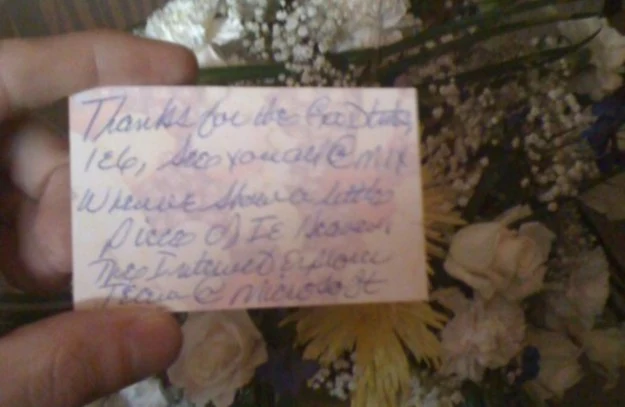 Thanks for the Good times
IE6, See you all @ MIX
When we show a little
piece of IE Heaven.
The Internet Explorer
Team @ Microsoft